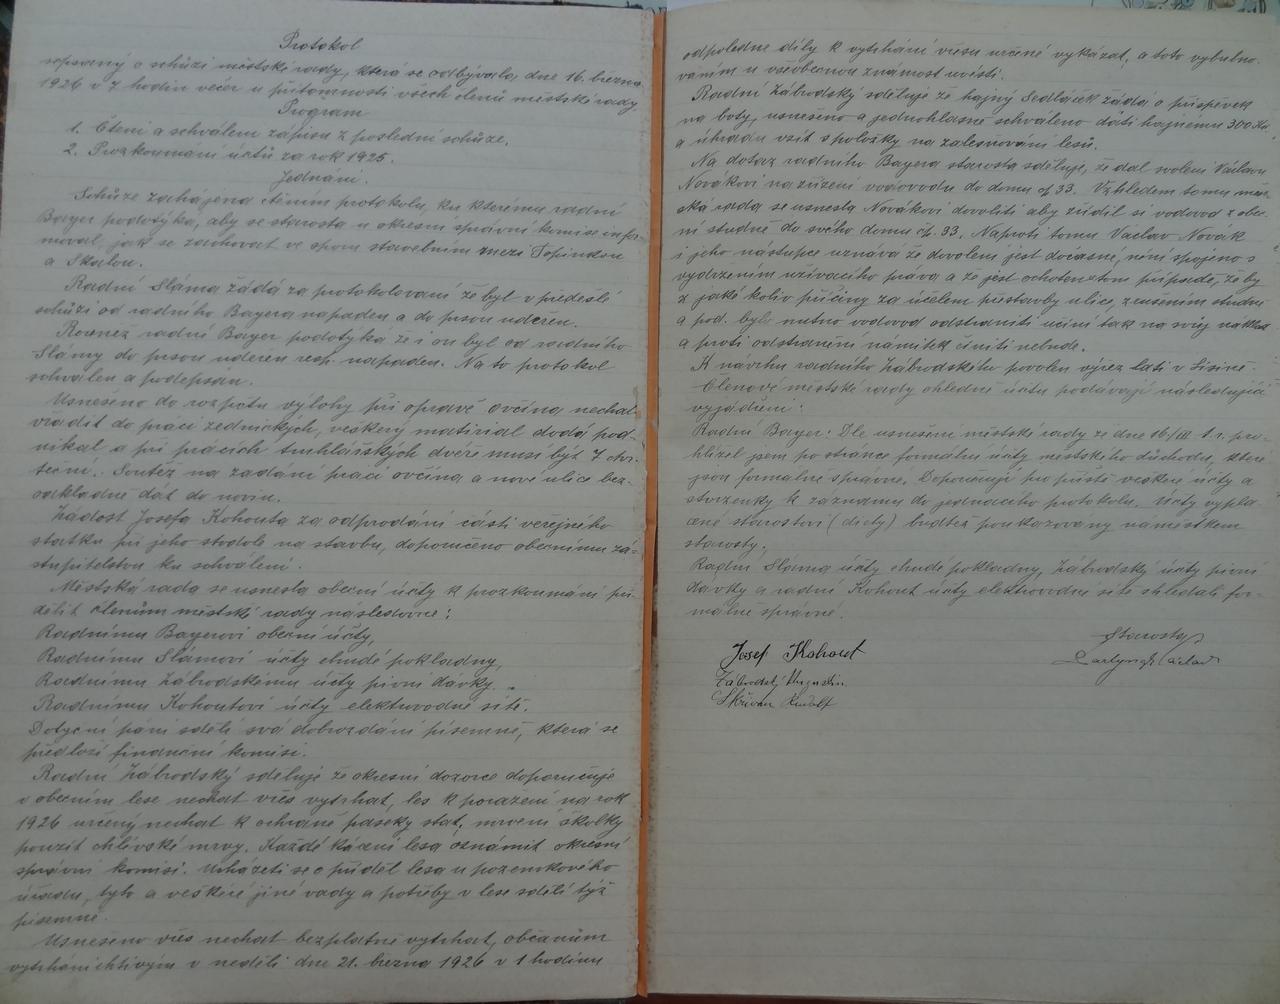 Protokol
sepsaný o schůzi městské rady, která se odbývala dne 16. března
1926 v 7 hodin večer u přítomnosti všech členů městské rady
Program
1. Čtení a schválení zápisu z poslední schůze.
2. Prozkoumání účtů za rok 1925.
Jednání.
Schůze zahájena čtením protokolu, ku kterému radní
Bayer podotýká, aby se starosta u okresní správní komise infor-
moval, jak se zachovat ve sporu stavebním mezi Topinkou
a Skalou.
Radní Sláma žádá za protokolovaní že byl v předešlé
schůzi od radního Bayera napaden a do prsou udeřen.
Rovněž radní Bayer podotýká že i on byl od radního
Slámy do prsou udeřen resp. napaden. Na to protokol
schválen a podepsán.
Usnešeno do rozpočtu výlohy při opravě ovčína nechat
vřadit do prací zednických, veškerý material dodá pod-
nikal a při pracích truhlářských dveře musí být 7 čtv-
teční. Soutěž na zadání prací ovčína a nové ulice bez-
odkladně dát do novin.
Žádost Josefa Kohouta za odprodaní části veřejného
statku při jeho stodole na stavbu, doporučeno obecnímu za-
stupitelstvu ku schválení.
Městská rada se usnesla obecní účty k prozkoumání při-
dělit členům městské rady následovně:
Radnímu Bayerovi obecní účty,
Radnímu Slámovi účty chudé pokladny,
Radnímu Zábrodskému účty pivní dávky.
Radnímu Kohoutovi účty elektrovodné sítě.
Dotyční páni sdělí svá dobrozdání písemně, která se
předloží finanční komisi.
Radní Zábrodský sděluje že okresní dozorce doporučuje
v obecním lese nechat vřes vytrhat, les k poražení na rok
1926 určený nechat k ochraně paseky stat, mrvení školky
použít chlévské mrvy. Každé kácení lesa oznámit okresní
správní komisi. Ucházeti se o příděl lesa u pozemkového
úřadu, tyto a veškeré jiné vady a potřeby v lese sdělí týž
písemně.
Usnešeno vřes nechat bezplatně vytrhat, občanům
vytrhání chtivým v neděli dne 21. března 1926 v 1 hodinu
odpoledne díly k vytrhání vřesu určené vykázat, a toto vybubno-
váním u všeobecnou známost uvésti.
Radní Zábrodský sděluje že hajný Sedláček žádá o příspěvek
na boty, usnešeno a jednohlasně schváleno dáti hajnému 300 Kč
a úhradu vzít s položky na zalesňování lesů.
Na dotaz radního Bayera starosta sděluje, že dal svolení Václavu
Novákovi na zřízení vodovodu do domu čp 33. Vzhledem tomu měst-
ská rada se usnesla Novákovi dovoliti aby zřídil si vodovod z obec-
ní studně do svého domu čp. 33. Naproti tomu Václav Novák
i jeho nástupce uznává že dovolení jest dočasné, není spojeno s
vydržením užívacího práva a že jest ochoten v tom případě, že by
z jaké koliv příčiny za účelem přestavby ulice, zrušením studně
a pod. bylo nutno vodovod odstraniti učiní tak na svůj náklad
a proti odstranění námitek činiti nebude.
K návrhu radního Zábrodského povolen výřez latí v Lisině.
Členové městské rady ohledně účtů podávají následující
vyjádření:
Radní Bayer: Dle usnešení městské rady ze dne 16/III t. r. pro-
hlížel jsem po stránce formální účty městského důchodu, které
jsou formálně správné. Doporučuji pro příště veškeré účty a
stvrzenky k záznamu do jednacího protokolu. Účty vypla-
cené starostovi (diety) buďtež poukazovány náměstkem
starosty.
Radní Sláma účty chudé pokladny, Zábrodský účty pivní
dávky a radní Kohout účty elektrovodné sítě shledali for-
málně správné.
Starosta
Josef Kohout
Zábrodský Augustin
Skřivan Rudolf